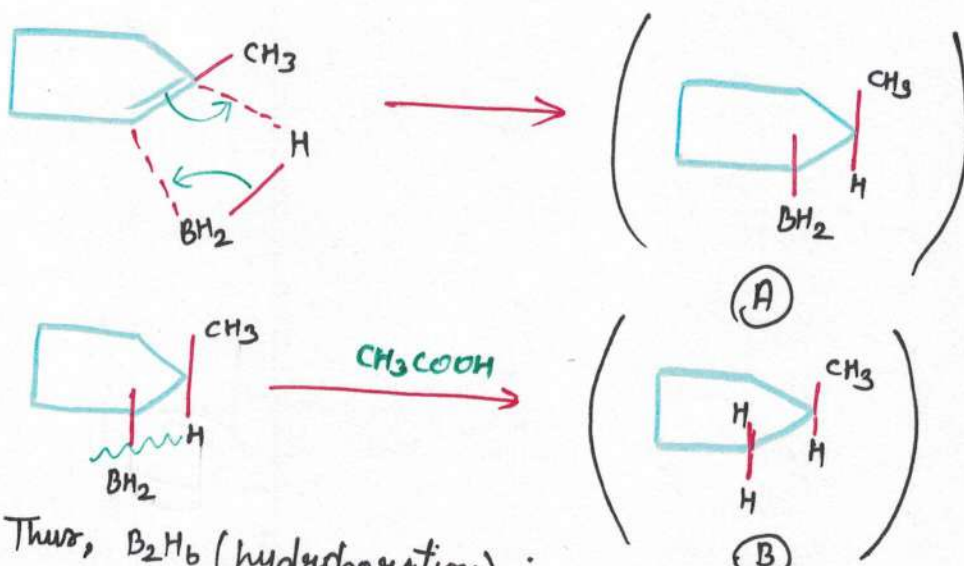 CH3
H
BH2
CH3
H
BH2
A
CH3
H
BH2
CH3COOH
CH3
H
H
H
B
Thus, B2H6 (hydroboration)